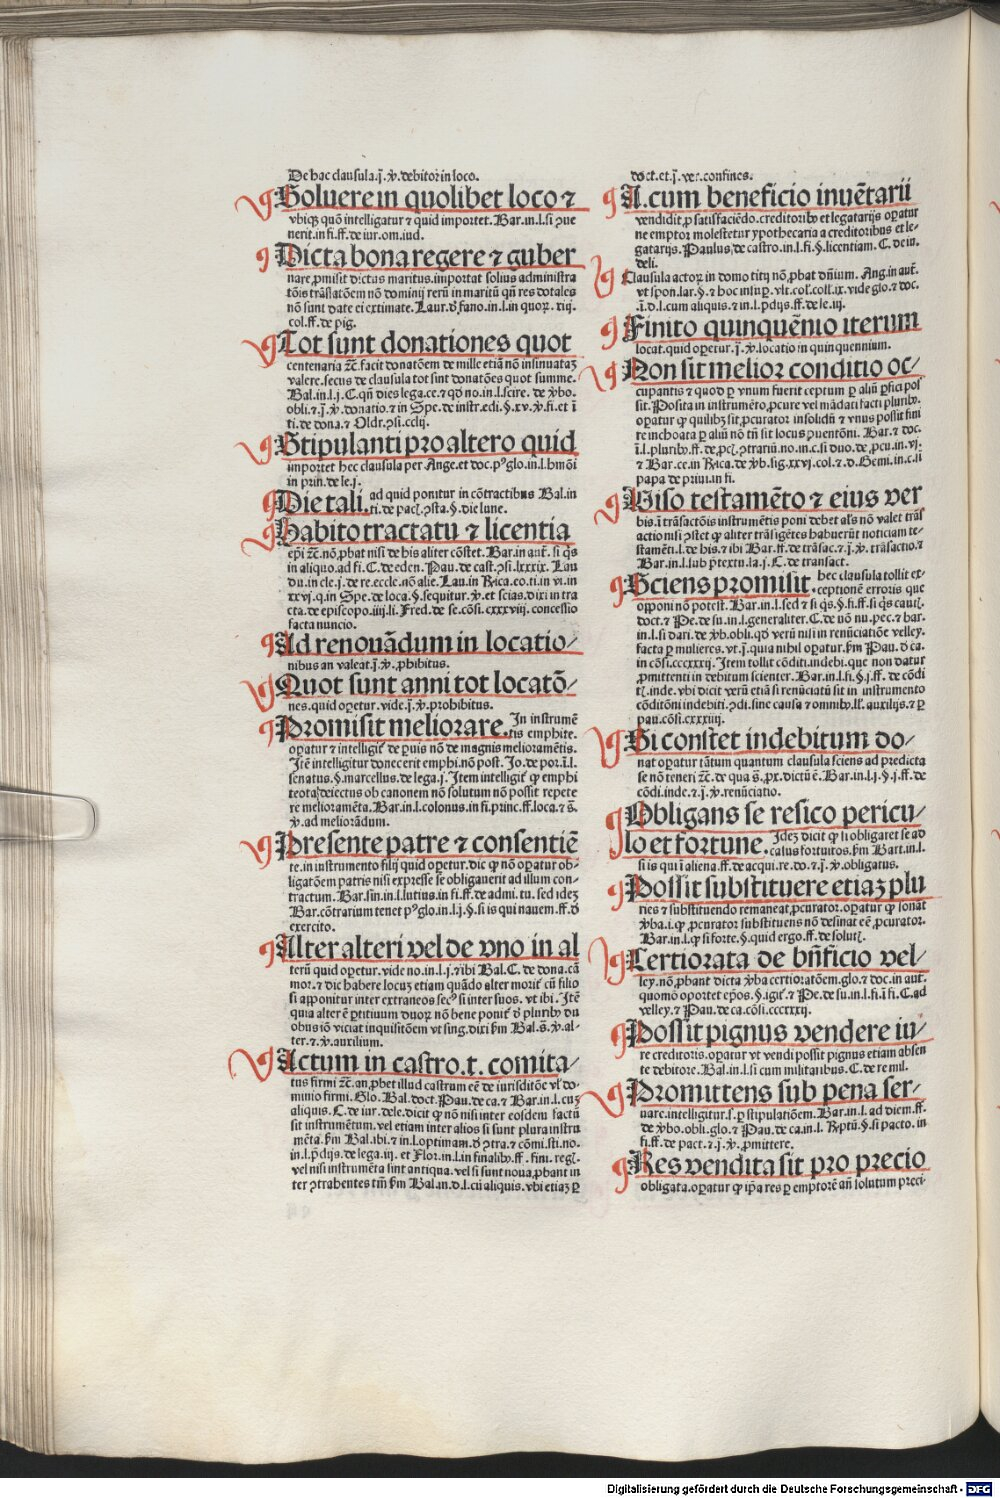 De hac clausula.j̄.ꝟ.debitor in loco.
Soluere in quolibet loco ⁊
vbiqꝫ quō intelligatur ⁊ quid importet. Bar.in.l.si ꝯue
nerit.in fi.ff.de iur.om.iud.
Dicta bona regere ⁊ guber
nare ꝓmisit dictus maritus.importat solius administra
tōis trāslatōem nō dominij rerū in maritū qn̄ res dotales
nō sunt date ei extimate. Laur.ď fano.in.l.in quoꝝ.xiij.
col.ff.de pig.
Tot sunt donationes quot
centenaria ⁊c̄.facit donatōem de mille etiā nō insinuataꝫ
valere.secus de clausula tot sint donatōes quot summe.
Bal.in.l.j. C.qn̄ dies lega.ce.⁊ qď no.in.l.scire. de ꝟbo.
obli.⁊ j̄.ꝟ.donatio.⁊ in Spe.de instr.edi.§.xv.ꝟ.fi.et ī
ti.de dona.⁊ Oldr.ꝯsi.cclij.
Stipulanti pro altero quid
importet hec clausula per Ange.et doc.pꝰ glo.in.l.hmōi
in prin.de le.j.
Die tali. ad quid ponitur in cōtractibus Bal.in
ti.de pact.ꝯsta.§.die lune.
Habito tractatu ⁊ licentia
epī ⁊c̄.nō ꝓbat nisi de his aliter cōstet. Bar.in aut̄. si qs̄
in aliquo.ad fi. C.de eden. Pau.de cast.ꝯsi.lxxxix. Lau
du.in cle.j.de re.eccle.nō alie. Lau.in Rica.eo.ti.in vi.in
xxvj.q.in Spe.de loca.§.sequitur.ꝟ.et scias.dixi in tra
cta.de episcopo.iiij.li. Fred.de se.cōsi.cxxxviij.concessio
facta nuncio.
Ad renouādum in locatio/
nibus an valeat.j̄.ꝟ.ꝓhibitus.
Quot sunt anni tot locatō/
nes.quid oꝑetur.vide.j̄.ꝟ.prohibitus.
Promisit meliorare. In instrumē
tis emphite.
oꝑatur ⁊ intelligit̄ de ꝑuis nō de magnis melioramētis.
Itē intelligitur donec erit emphi.nō post. Jo.de por.ī.l.
senatus.§.marcellus.de lega.j. Item intelligit̄ ꝙ emphi
teota deiectus ob canonem nō solutum nō possit repete
re melioramēta. Bar.in.l.colonus.in fi.princ.ff.loca.⁊ s̄.
ꝟ.ad meliorādum.
Presente patre ⁊ consentiē
te.in instrumento filij quid oꝑetur.dic ꝙ nō oꝑatur ob-
ligatōem patris nisi expresse se obligauerit ad illum con-
tractum. Bar.sin.in.l.lutius.in fi.ff.de admi.tu.sed idez
Bar.cōtrarium tenet pꝰ glo.in.l.j.§.si is qui nauem.ff.ď
exercito.
Alter alteri vel de vno in al
terū quid oꝑetur.vide no.in.l.j.⁊ ibi Bal. C.de dona.cā
mor.⁊ dic habere locuꝫ etiam quādo alter morit̄ cū filio
si apponitur inter extraneos secꝰ si inter suos. vt ibi. Itē
quia alter ē ꝑtitiuum duoꝝ nō bene ponit̄ ď pluribꝰ du
obus iō viciat inquisitōem vt sing.dixi ꝑm Bal.s̄.ꝟ.al-
ter.⁊.ꝟ.auxilium.
Actum in castro.t.comita-
tus firmi ⁊c̄.an ꝓbet illud castrum eē de iurisditōe vľ do-
minio firmi. Glo. Bal.doct. Pau.de ca.⁊ Bar.in.l.cuꝫ
aliquis. C.de iur.dele.dicit ꝙ nō nisi inter eosdem factū
sit instrumētum.vel etiam inter alios si sunt plura instru
mēta.ꝑm Bal.ibi.⁊ in.l.optimam.ď ꝯtra.⁊ cōmi.sti.no.
in.l.p̄dijs.de lega.iij. et Flor.in.l.in finalibꝰ.ff.fini.regꝉ.
vel nisi instrumēta sint antiqua.vel si sunt noua ꝓbant in
ter ꝯtrahentes tm̄ ꝑm Bal.in.d.l.cū aliquis.vbi etiaꝫ ꝑ
doct.et.j̄.ver.confines.
A.cum beneficio inuētarii
vendidit ꝓ satisfaciēdo.creditoribꝰ et legatarijs oꝑatur
ne emptor molestetur ypothecaria a creditoribus et le-
gatarijs. Paulus.de castro.in.l.fi.§.licentiam. C.de iu.
deli.
Clausula actoꝝ in domo titij nō ꝓbat dn̄ium. Ang.in aut̄.
vt spon.lar.§.⁊ hoc insuꝑ.vlt.coľ.coll.ix.vide glo.⁊ doc.
ī.d.l.cum aliquis.⁊ in.l.p̄dijs.ff.de le.iij.
Finito quinquēnio iterum
locat.quid oꝑetur.j̄.ꝟ.locatio in quinquennium.
Non sit melior conditio oc/
cupantis ⁊ quod ꝑ vnum fuerit ceptum ꝑ aliū ꝑfici pos
sit. Posita in instrumēto ꝓcure vel mādati facti pluribꝰ.
oꝑatur ꝙ quilibꝫ sit ꝓcurator insolidū ⁊ vnus possit fini
re inchoata ꝑ aliū nō tn̄ sit locus ꝑuentōni. Bar.⁊ doc.
ī.l.pluribꝰ.ff.de ꝓcꝉ.ꝯtrariū.no.in.c.si duo.de ꝓcu.in.vj.
⁊ Bar.ce.in Rica.de ꝟb.sig.xxvj.col.⁊.d. Gemi.in.c.si
papa de priui.in fi.
Uiso testamēto ⁊ eius ver
bis.ī trāsactōis instrumētis poni debet al's nō valet trāſ
actio nisi ꝯstet ꝙ aliter trāsigētes habuerūt noticiam te-
stamēti.l.de his.⁊ ibi Bar.ff.de trāsac.⁊.j̄.ꝟ.trāsactio.⁊
Bar.in.l.sub p̄textu.la.j. C.de transact.
Sciens promisit. hec clausula tollit ex-
ceptionē erroris que
opponi nō potest. Bar.in.l.sed ⁊ si qs̄.§.fi.ff.si qs̄ cautꝉ.
doct.⁊ Pe.de su.in.l.generaliter. C.de nō nu.pec.⁊ bar.
in.l.si dari.de ꝟb.obli.qď verū nisi in renūciatiōe velley.
facta ꝑ mulieres.vt.j̄.quia nihil oꝑatur.ꝑm Pau.ď ca.
in cōsi.cccxxxij. Item tollit cōditi.indebi.que non datur
ꝓmittenti in debitum scienter. Bar.in.l.fi.§.j.ff.de cōdi
tꝉ.inde.vbi dicit verū etiā si renūciatū sit in instrumento
cōditōni indebiti.ꝯdi.sine causa ⁊ omnibꝰ.ll.auxilijs.⁊ ꝑ
pau.cōsi.cccxxxiij.
Si constet indebitum do/
nat oꝑatur tātum quantum clausula sciens ad predicta
se nō teneri ⁊c̄.de qua s̄.ꝓx.dictū ē. Bar.in.l.j.§.j.ff.de
cōdi.inde.⁊.j̄.ꝟ.renūciatio.
Obligans se resico pericu/
lo et fortune. Idez dicit ꝙ si obligaret se ad
calus fortuitos.ꝑm Bart.in.l.
si is qui ī aliena.ff.de acqui.re.do.⁊.j̄.ꝟ.obligatus.
Possit substituere etiaꝫ plu
ries ⁊ substituendo remaneat ꝓcurator.oꝑatur ꝙ sonat
ꝟba.i.ꝙ ꝓcurator substituens nō desinat eē ꝓcurator.
Bar.in.l.ꝙ si forte.§.quid ergo.ff.de solutꝉ.
Certiorata de bn̄ficio vel/
ley.nō ꝓbant dicta ꝟba certioratōem.glo.⁊ doc.in aut̄.
quomō oportet ep̄os.§.igit̄.⁊ Pe.de su.in.l.fi.ī fi. C.ad
velley.⁊ Pau.de ca.cōsi.cccxxxij.
Possit pignus vendere iu/
re creditoris.oꝑatur vt vendi possit pignus etiam absen
te debitore. Bal.in.l.si cum militaribus. C.de re mil.
Promittens sub pena ser/
uare.intelligitur.s.ꝑ stipulatiōem. Bar.in.l.ad diem.ff.
de ꝟbo.obli.glo.⁊ Pau.de ca.in.l. Reptū.§.si pacto.in
fi.ff.de pact.⁊.j̄.ꝟ.ꝓmittere.
Res vendita sit pro precio
obligata.oꝑatur ꝙ ip̄a res ꝑ emptorē an̄ solutum preci-
Digitalisierung gefördert durch die Deutsche Forschungsgemeinschaft - DFG